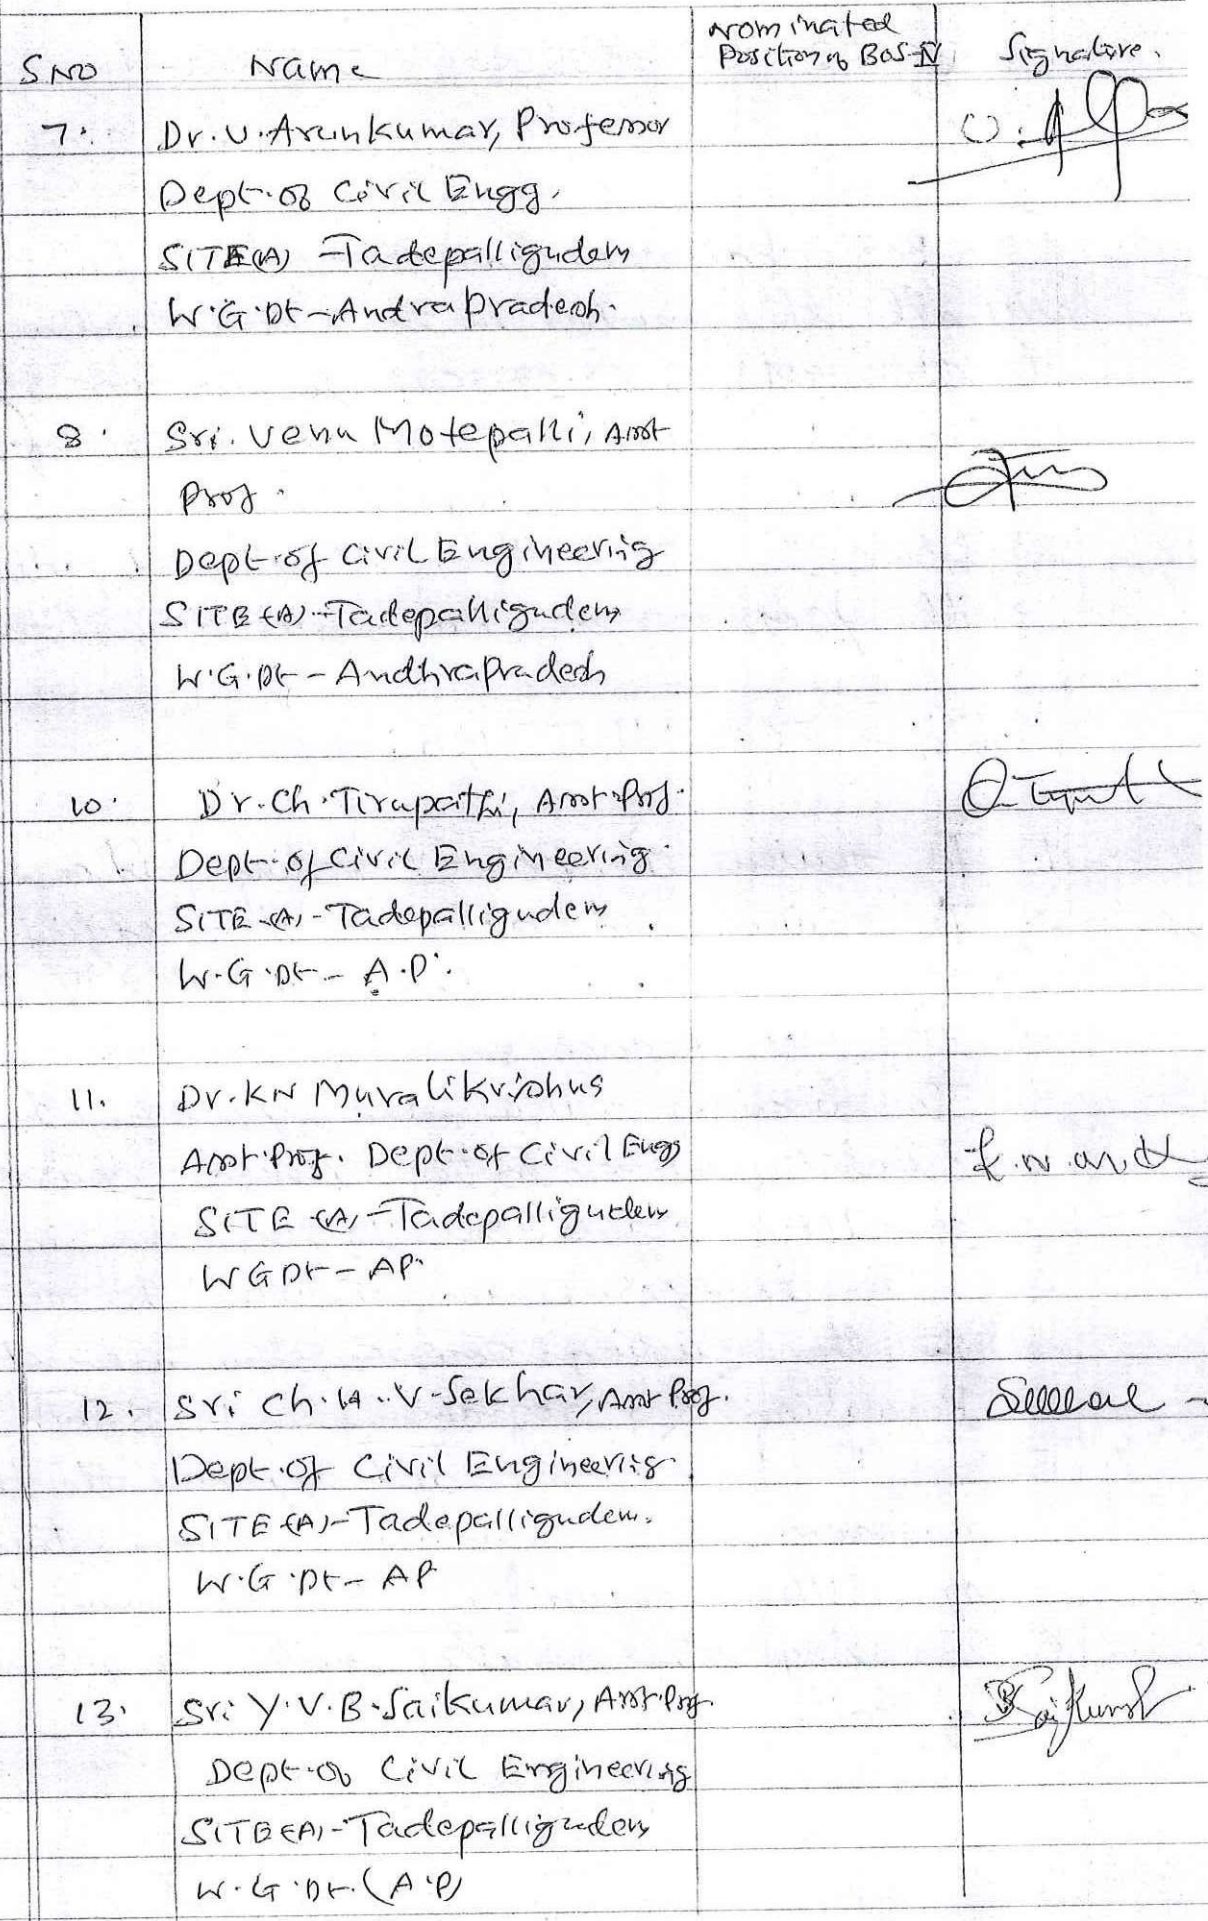 Nominated
S NO Name Position of BOS-IV Signature.
7. Dr. U. Arunkumar, Professor
Dept. of Civil Engg.
SITE(A) - Tadepalligudem
W.G.Dt - Andra Pradesh.
8. Sri. Venu Motepalli, Asst
Prof.
Dept. of Civil Engineering
SITE (A) - Tadepalligudem
W.G.Dt - Andhrapradesh
10. Dr. Ch. Tirupathi, Asst. Prof.
Dept. of Civil Engineering.
SITE (A) - Tadepalligudem
W.G.Dt - A.P.
11. Dr. KN Muralikrishna
Asst. Prof. Dept. of Civil Engg
SITE (A) - Tadepalligudem
WGDt - AP.
12. Sri Ch. H. V. Sekhar, Asst Prof.
Dept. of Civil Engineering.
SITE (A) - Tadepalligudem.
W.G.Dt - AP
13. Sri Y.V.B. Saikumar, Asst. Prof. Saikumar
Dept. of Civil Engineering
SITE (A) - Tadepalligudem
W.G.Dt. (A.P)